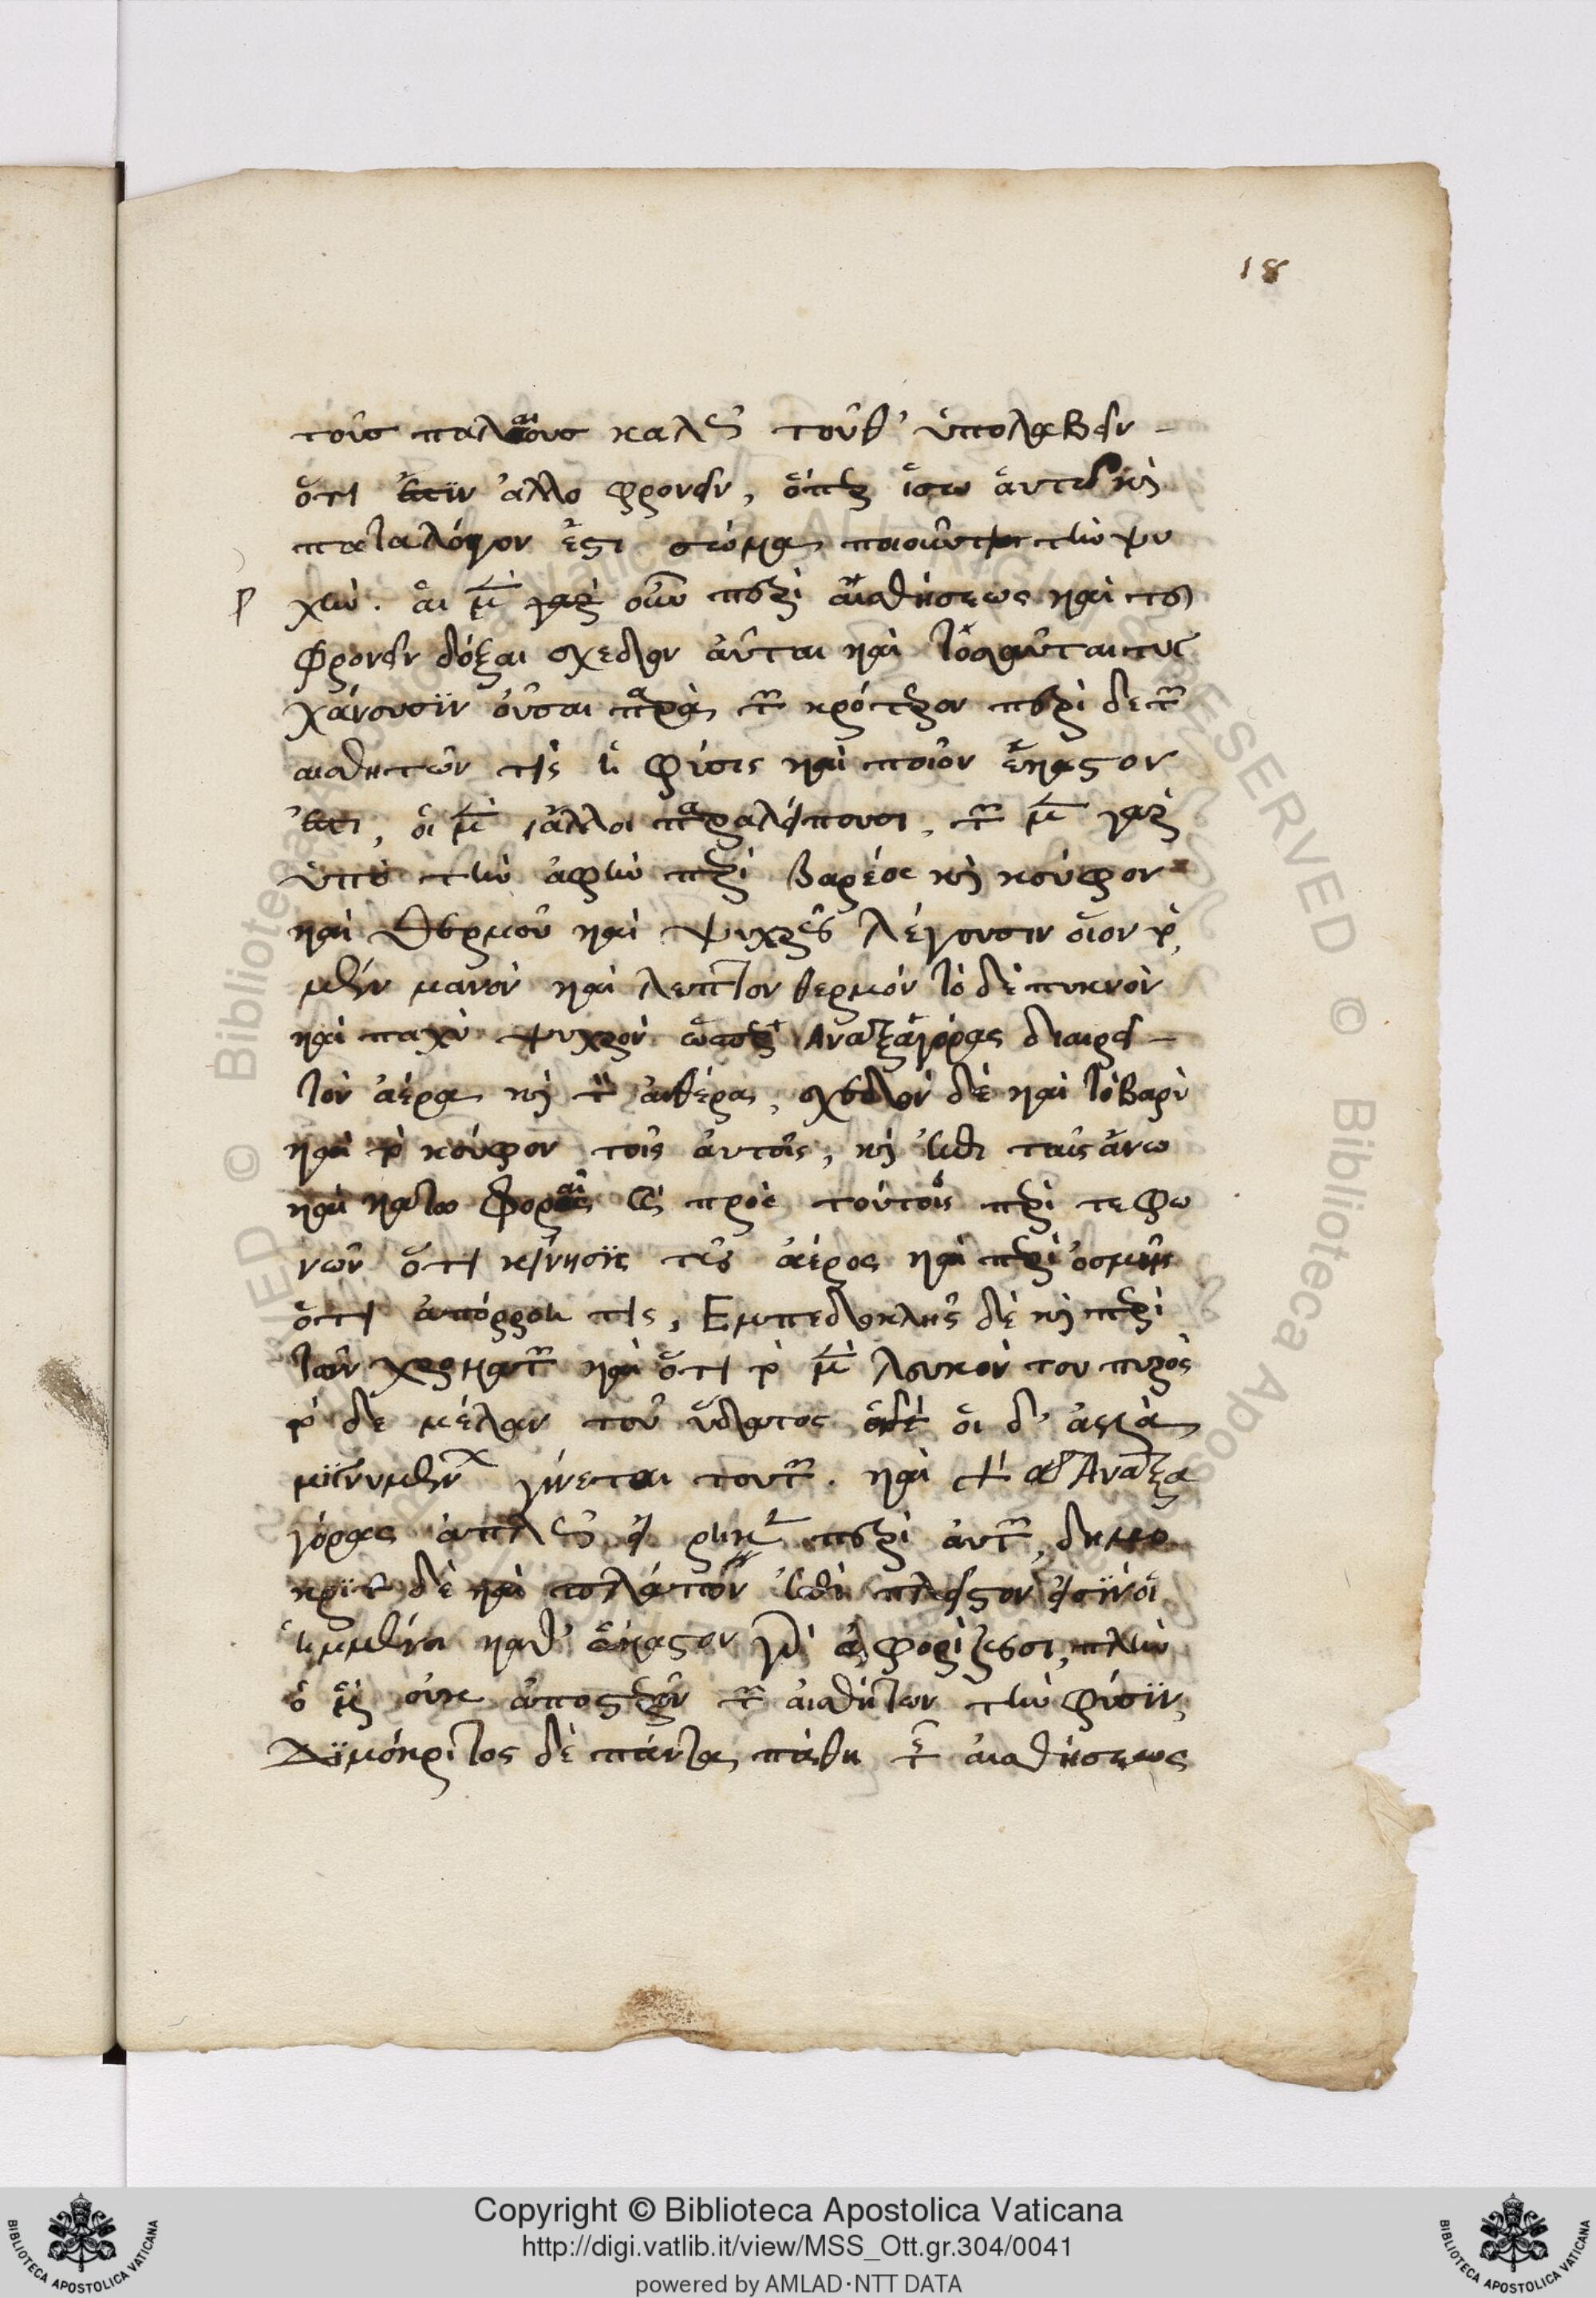 18
τοὺσ παλαιοὺσ καλῶς τοῦθ' ὑπολαβεῖν
ὅτι ἐστὶν ἄλλο φρονεῖν, ὅπερ ἴσω αὐτῶ καὶ
παταλόγον ἐστι σῶμα ποιοῦντι τὴν ψυ
χήν. αἱ μὲν γὰρ οὖν περὶ αἰσθήσεως καὶ τοῦ
φρονεῖν δόξαι σχεδὸν αὗται καὶ τοσαῦται τυγ
χάνουσιν οὖσαι παρὰ τῶν πρότερον περὶ δε τῶν
αισθητῶν τίς ἡ φύσις καὶ ποῖον ἕκαστον
ἐστι, οἱ μὲν ἄλλοι παραλείπουσι, τῶν μὲν γὰρ
ὑπὸ τὴν ἁφὴν περὶ βαρέος καὶ κούφου
καὶ θερμοῦ καὶ ψυχροῦ λέγουσιν οἷον τὸ
μὲν μανὸν καὶ λεπτὸν θερμόν τὸ δὲ πυκνὸν
καὶ παχὺ ψυχρὸν ὥσπερ Ἀναξαγόρας διαιρεῖ
τὸν ἀέρα καὶ τὸν αἰθέρα, σχεδὸν δὲ καὶ τὸ βαρὺ
καὶ τὸ κούφον τοῖς αὐτοῖς, καὶ ἔτι ταῖς ἄνω
καὶ κάτω φοραῖς καὶ πρὸς τούτοις περὶ τε φω
νῶν ὅτι κίνησις τοῦ ἀέρος καὶ περὶ ὀσμῆς
ὅτι ἀπόρροη τις, Εμπεδοκλῆς δὲ καὶ περὶ
τῶν χρωμάτων καὶ ὅτι τὸ μὲν λευκὸν του πυρὸς
τὸ δε μέλαν τοῦ ὕδατος οἱ δ'
γίνεται τούτων. καὶ γὰρ Ἀναξα
γόρας ἁπλῶς περὶ αὐτῶν, δημο
κριτος δὲ καὶ πλάτων ἐπὶ πλεῖστον εἰσὶν
ἡμμένοι καθ' ἕκαστον γὰρ ἀφορίζουσι, πλὴν
ὁ μὲν οὐκ ἀποστερῶν τῶν αἰσθητῶν τὴν φύσιν,
Δημόκριτος δὲ πάντα πάθη τῆς αἰσθήσεως
Copyright © Biblioteca Apostolica Vaticana
http://digi.vatlib.it/view/MSS_Ott.gr.304/0041
powered by AMLAD·NTT DATA